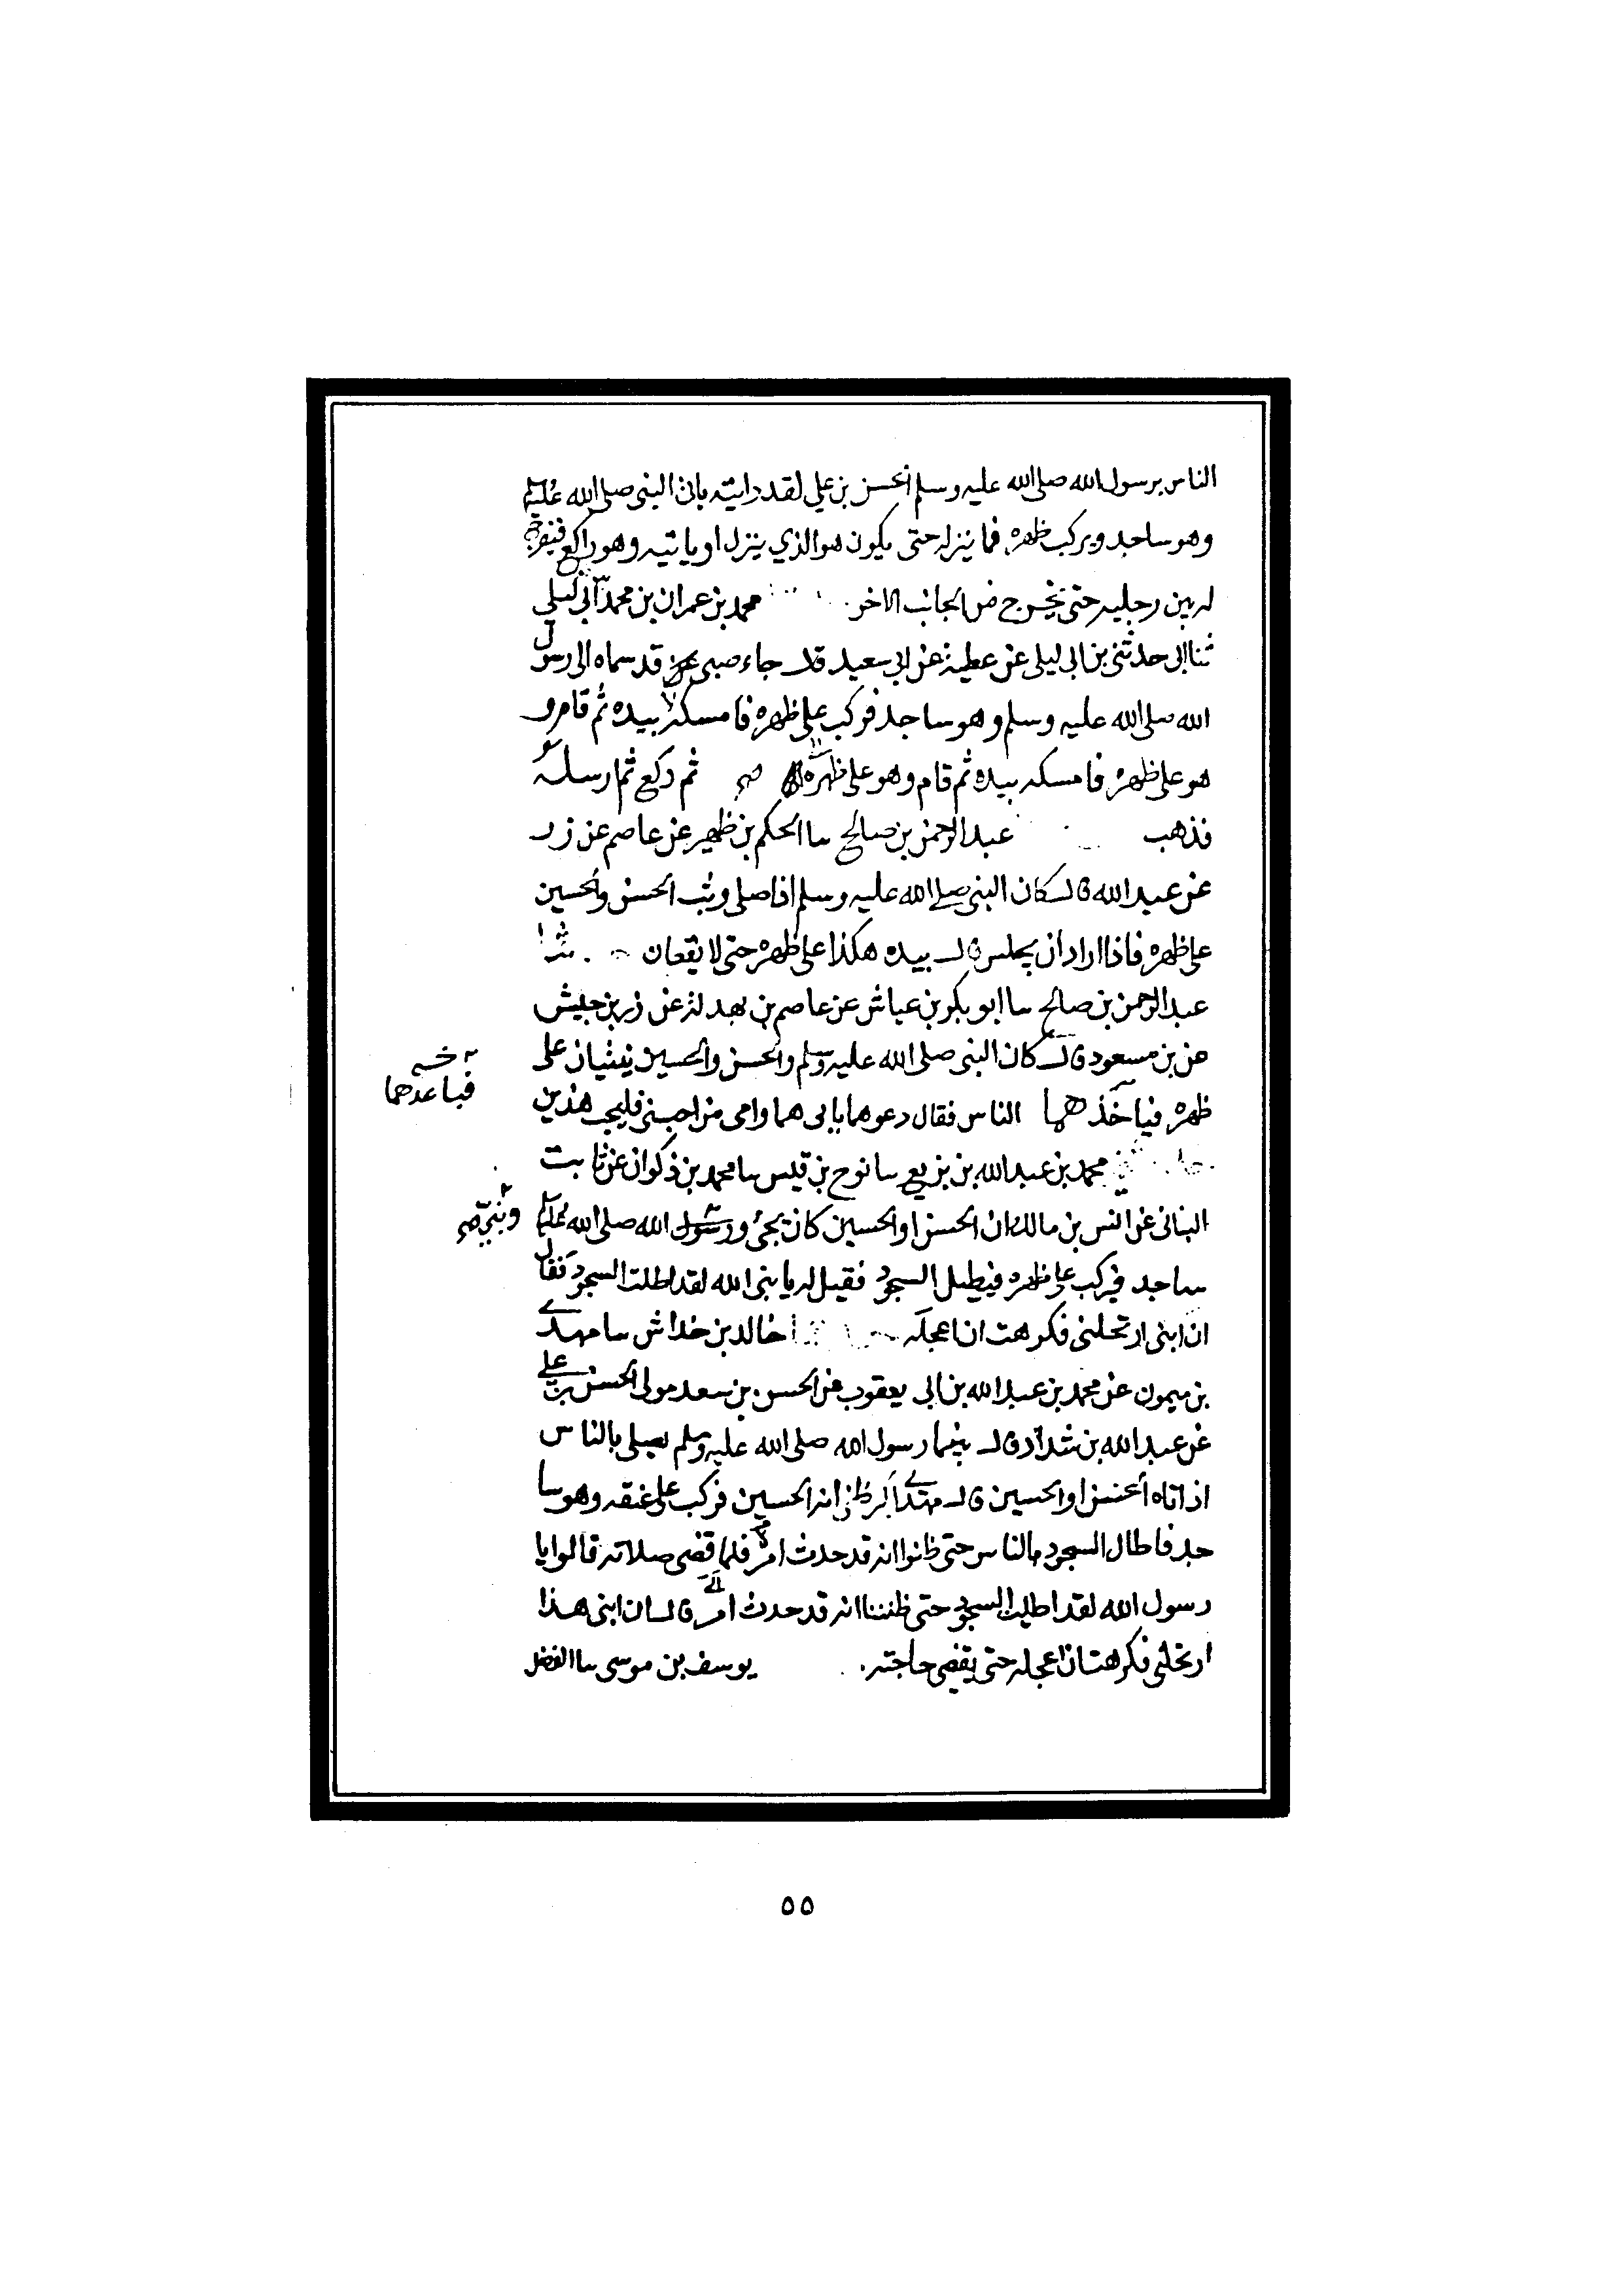 الناس برسول الله صلى الله عليه وسلم الحسن بن علي لقد رايته ياتي النبي صلى الله عليه
وهو ساجد ويركب ظهره فما ينزله حتى يكون هو الذي ينزل او ياتيه وهو راكع فيفرج
له بين رجليه حتى يخرج من الجانب الاخر محمد بن عمران بن محمد بن ابي ليلى
ثنا ابي حدثني بن ابي ليلى عن عطية عن ابي سعيد قال جاء صبي قد سماه الى رسول
الله صلى الله عليه وسلم وهو ساجد فركب على ظهره فامسكه بيده ثم قام و
هو على ظهره فامسكه بيده ثم قام وهو على ظهره ثم ركع ثم ارسله
فذهب عبد الرحمن بن صالح سا الحكم بن ظهير عن عاصم عن زر
عن عبد الله قال كان النبي صلى الله عليه وسلم اذا صلى وثب الحسن والحسين
على ظهره فاذا اراد أن يجلس قال بيده هكذا على ظهره حتى لا يقعان
عبد الرحمن بن صالح سا ابو بكر بن عياش عن عاصم بن بهدلة عن زر بن حبيش
عن بن مسعود قال كان النبي صلى الله عليه وسلم والحسن والحسين يثبان على
ظهره فياخذهما الناس فقال دعوهما بابي هما وامي من احبني فليحب هذين
فباعدهما
محمد بن عبد الله بن بزيع سا نوح بن قيس سا محمد بن ذكوان عن ثابت
البناني عن انس بن مالك ان الحسن او الحسين كان يجئ ورسول الله صلى الله عليه
ساجد فيركب على ظهره فيطيل السجود فقيل له يا نبي الله لقد اطلت السجود فقال
ان ابني ارتحلني فكرهت ان اعجله خالد بن خداش سا مهدي
بن ميمون عن محمد بن عبد الله بن ابي يعقوب عن الحسن بن سعد مولى الحسن بن علي
عن عبد الله بن شداد قال بينما رسول الله صلى الله عليه وسلم يصلي بالناس
اذ اتاه الحسن او الحسين قال مهدي اكبر ظني انه الحسين فركب على عنقه وهو سا
جد فاطال السجود بالناس حتى ظنوا انه قد حدث امر فلما قضى صلاته قالوا يا
رسول الله لقد اطلت السجود حتى ظننا انه قد حدث امر قال ان ابني هذا
ارتحلني فكرهت ان اعجله حتى يقضي حاجته. يوسف بن موسى سا الفضل
٥٥